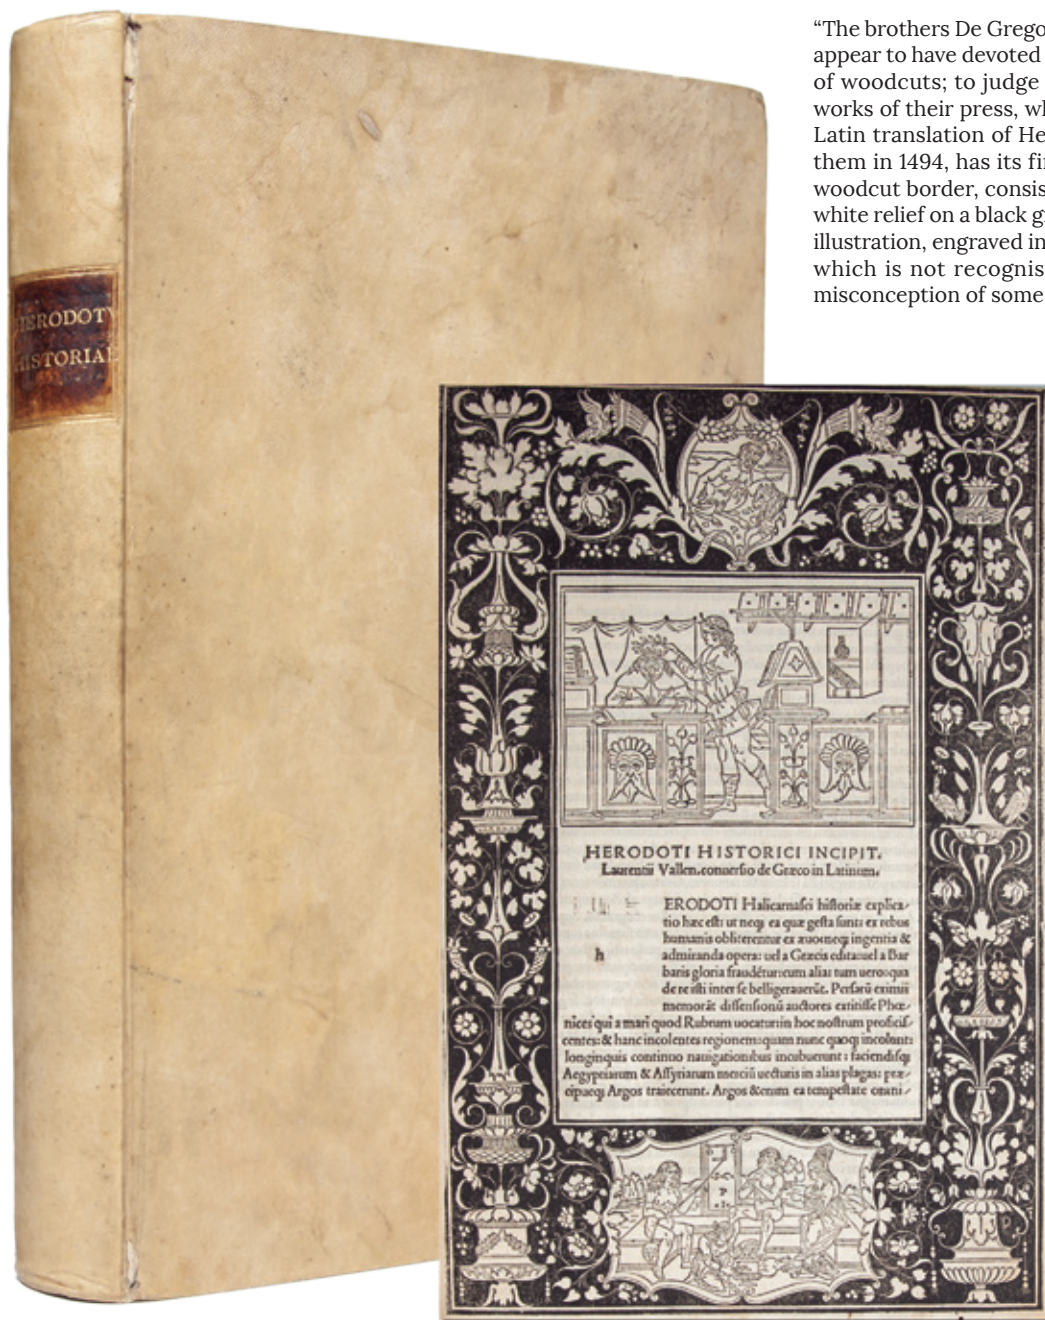 “The brothers De Grego
appear to have devoted
of woodcuts; to judge
works of their press, wh
Latin translation of He
them in 1494, has its fir
woodcut border, consis
white relief on a black g
illustration, engraved in
which is not recognis
misconception of some
HERODOTV
HISTORIAE
HERODOTI HISTORICI INCIPIT.
Laurentii Vallen. conuersio de Græco in Latinum.
ERODOTI Halicarnasei historiæ explica/
tio hæc est: ut neqꝫ ea quæ gesta sunt: ex rebus
humanis obliterentur ex æuo: neqꝫ ingentia &
h
admiranda opera: uel a Græcis edita: uel a Bar
baris gloria fraudētur: cum alia: tum uero: qua
de re isti inter se belligerauerūt. Persarū eximii
memorāt dissensionū auctores extitisse Phœ/
nices qui a mari quod Rubrum uocatur in hoc nostrum proficis/
centes: & hanc incolentes regionem: quam nunc quoqꝫ incolunt:
longinquis continuo nauigationibus incubuerunt: faciendisqꝫ
Aegyptiarum & Assyriarum merciū uecturis in alias plagas: præ/
cipueqꝫ Argos traiecerunt. Argos &enim ea tempestate omni/